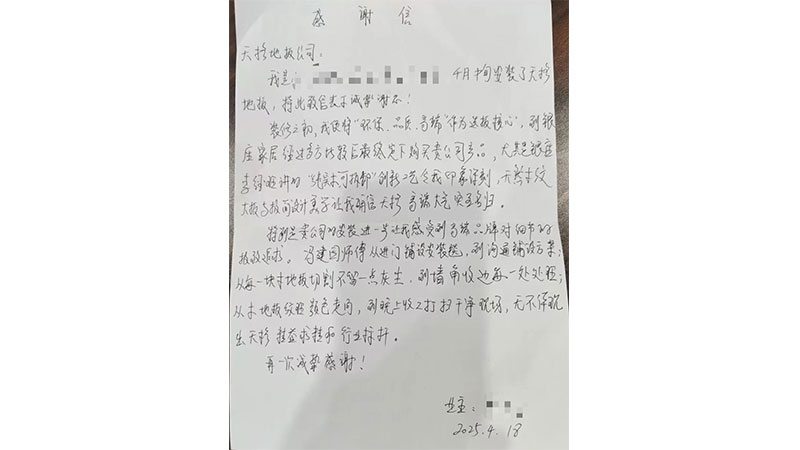 感谢信
天格地板公司：
我是 4月中旬安装了天格
地板，特此致信表示诚挚谢意！
装修之初，我便将“环保、品质、高端”作为选板核心，到银
座家居经过多方比较后最终定下购买贵公司产品，尤其是银座
李经理讲的“纯实木可拆卸”创新工艺令我印象深刻，
大板与极简设计美学让我确信天格高端大气实至名归。
特别是贵公司的安装进一步让我感受到高端品牌对细节的
极致追求。冯建国师傅从进门铺设安装毯，到沟通铺设方案；
从每一块木地板切割不留一点灰尘，到墙角收边每一处处理；
从木地板纹理颜色走向，到晚上收工打扫干净现场，无不体现
出天格精益求精和行业标杆。
再一次诚挚感谢！
业主：
2025.4.18